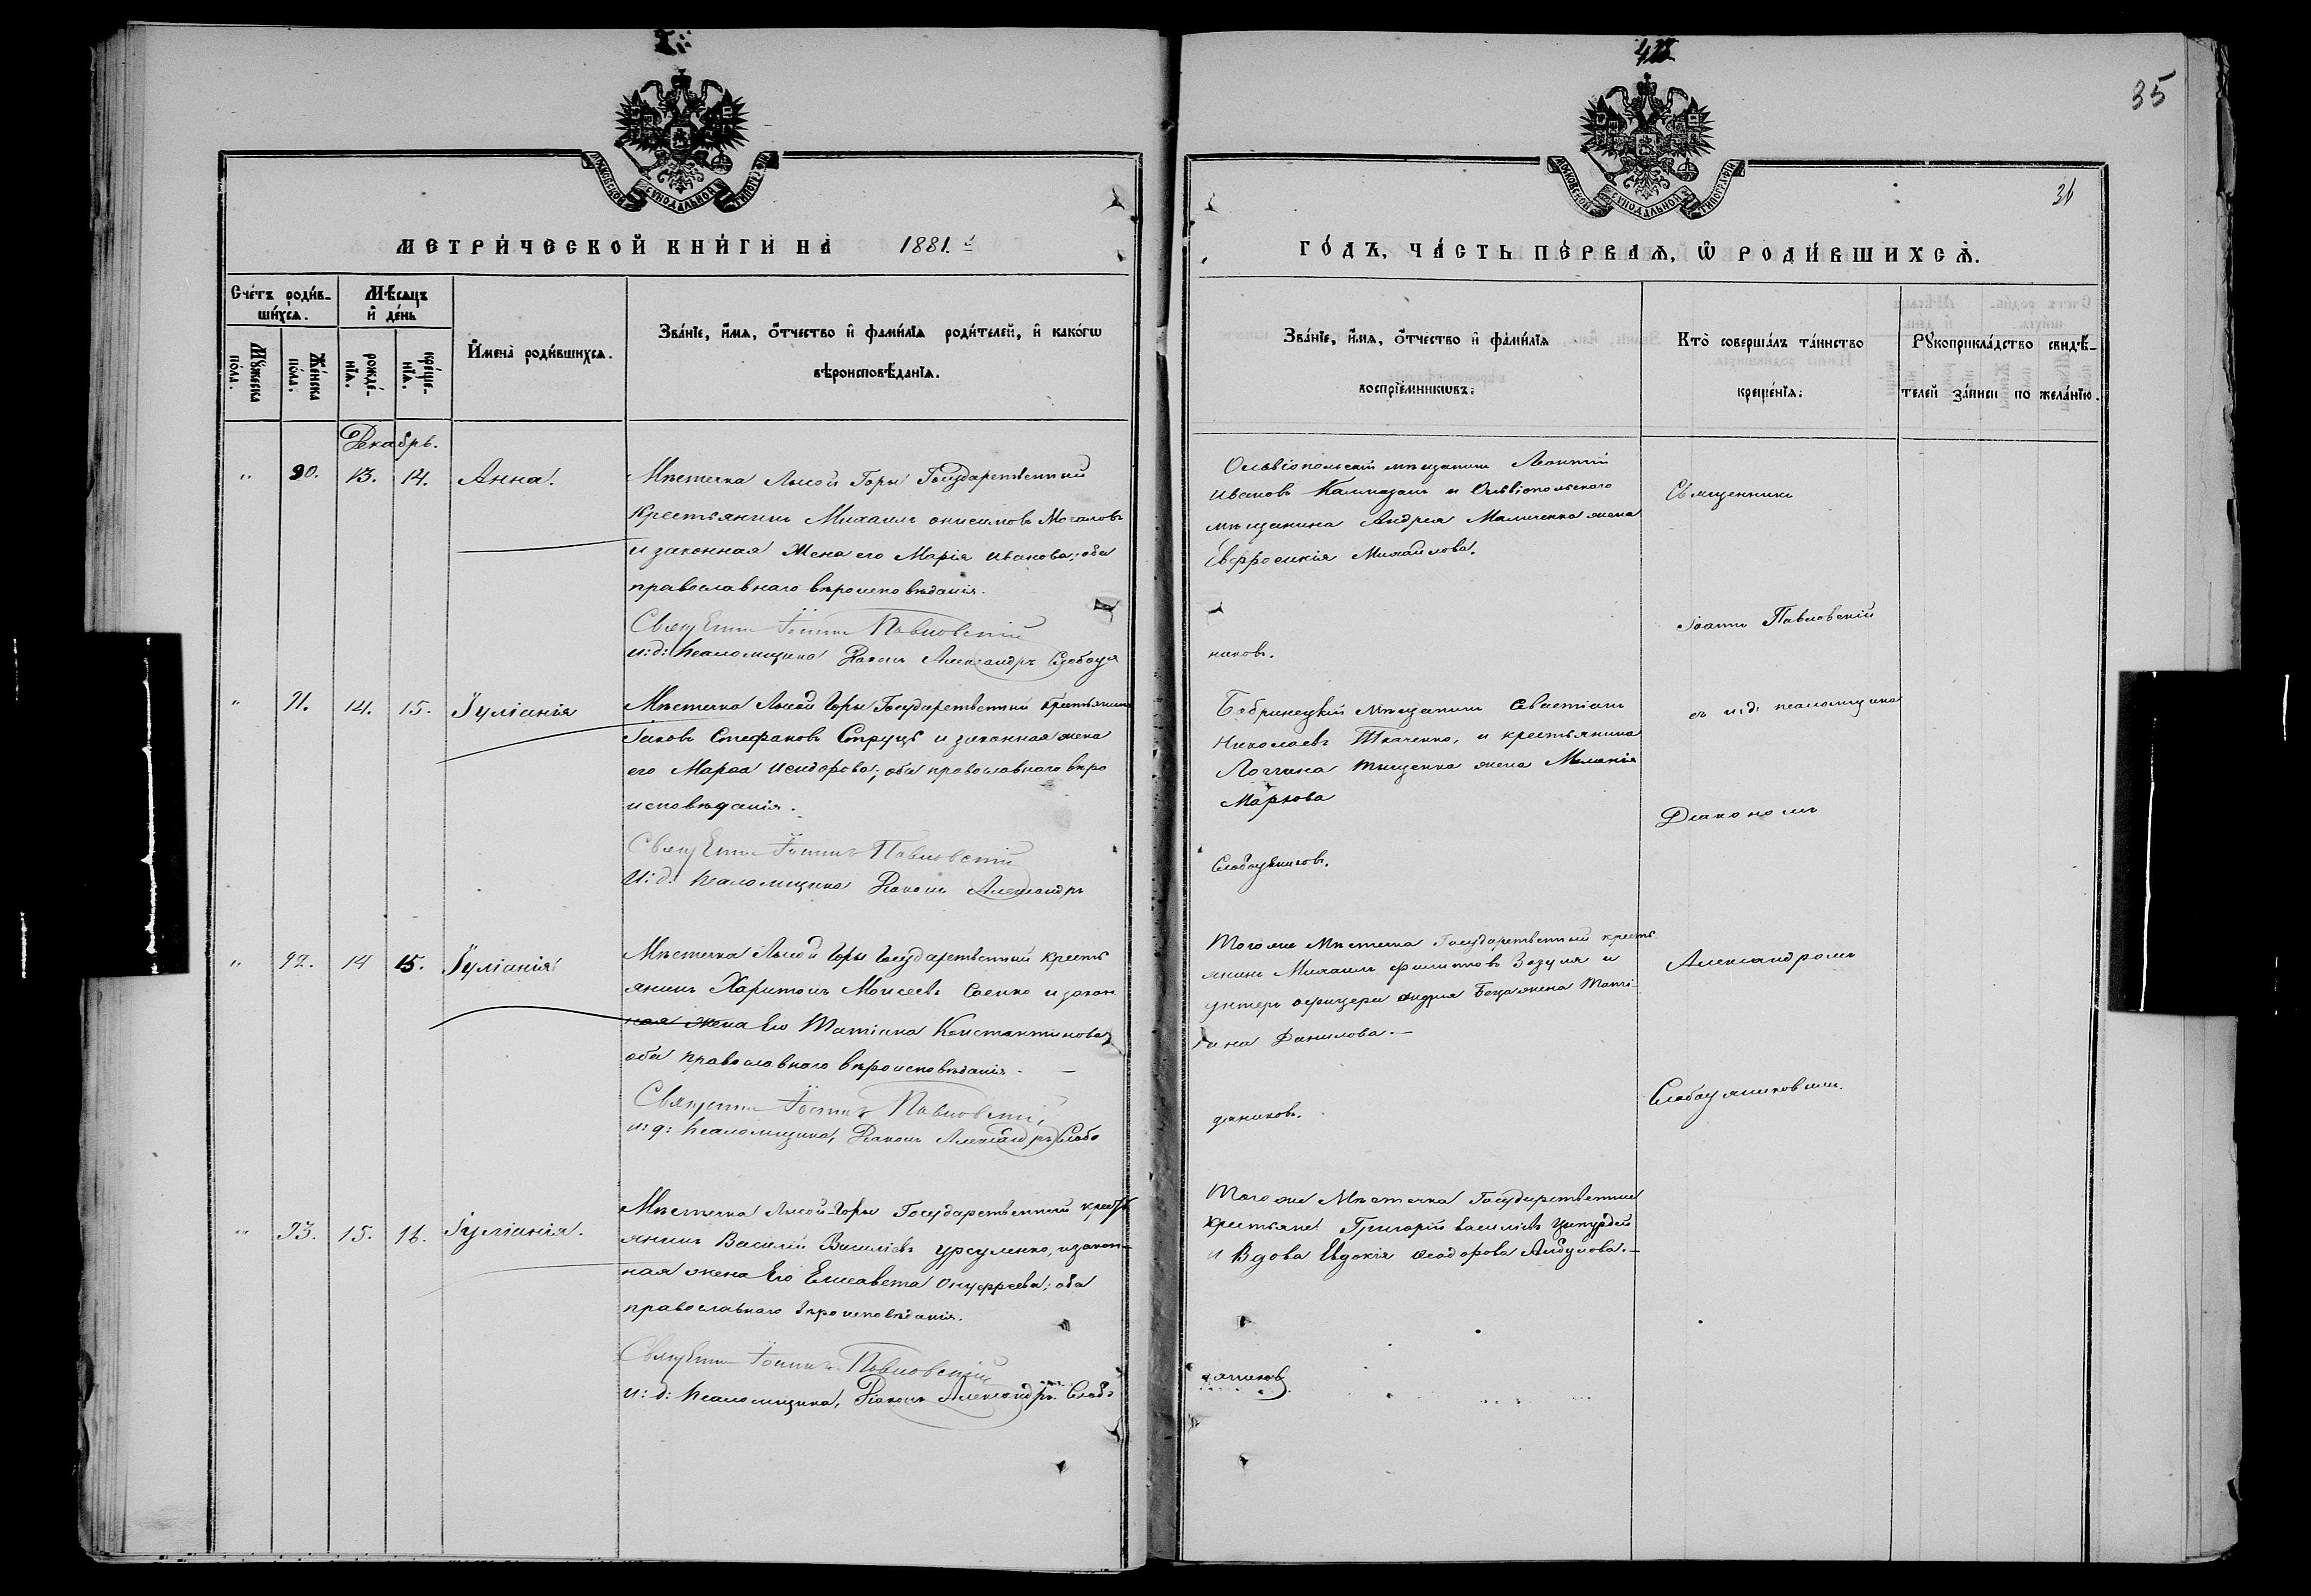 35
36
МОСКОВСКОЙ СѴНОДАЛЬНОЙ ТИПОГРАФІИ
МОСКОВСКОЙ СѴНОДАЛЬНОЙ ТИПОГРАФІИ
МЕТРИ́ЧЕСКОЙ КНИ́ГИ НА 1881.й
ГО́ДЪ, ЧА́СТЬ ПЕ́РВАѦ, Ѡ҆ РОДИ́ВШИХСѦ.
Сче́тъ роди́в-
шихсѧ.
Мꙋжеска пола.
Же́нска по́ла.
Мѣсѧцъ
и҆ де́нь
рожде́-
нїѧ.
креще́-
нїѧ.
И҆мена̀ роди́вшихсѧ.
Зва́нїе, и҆́мѧ, ѻ҆́тчество и҆ фами́лїѧ роди́телей, и҆ како́гѡ
вѣроисповѣ́данїѧ.
Зва́нїе, и҆́мѧ, ѻ҆́тчество и҆ фами́лїѧ
воспрїе́мникѡвъ.
Кто̀ соверша́лъ та́инство
креще́нїѧ.
Рꙋкоприкла́дство свидѣ́-
телей за́писи по жела́нїю.
Декабрь.
" 90. 13. 14. Анна.
Мѣстечка Лысой Горы Государственный
Крестьянинъ Михаилъ Онисимовъ Мочаловъ
и законная Жена его Марія Иванова; оба
православнаго вѣроисповѣданія.
Священникъ Іоаннъ Павловскій
и: д: Псаломщика Діаконъ Александръ Слободя
Ольвіопольскій мѣщанинъ Леонтій
Ивановъ и Ольвіопольскаго
мѣщанина Андрея жена
Евфросинія Михайлова.
никовъ.
Священникъ
Іоаннъ Павловскій
съ и. д. псаломщика
Діакономъ
Александромъ
Слободяниковымъ.
" 91. 14. 15. Іуліанія
Мѣстечка Лысой Горы Государственный Крестьянинъ
Іаковъ Стефановъ Струцъ и законная жена
его Марфа Исидорова; оба православнаго вѣро
исповѣданія.
Священникъ Іоаннъ Павловскій
И: д: Псаломщика Діаконъ Александръ
Бобринецкій Мѣщанинъ Севастіанъ
Николаевъ Ткаченко, и крестьянина
Логгина Тищенка жена Меланія
Маркова
Слободяниковъ.
" 92. 14 15. Іуліанія
Мѣстечка Лысой Горы Государственный Кресть
янинъ Харитонъ Моисеевъ Саенко и закон
ная жена Его Татіана Константинова,
оба православнаго вѣроисповѣданія. —
Священникъ Іоаннъ Павловскій
и: д: Псаломщика, Діаконъ Александръ Слобо
Того же Мѣстечка Государственный кресть
янинъ Михаилъ Филипповъ Зозуля и
унтеръ офицера Андрея жена Таті-
ана Данилова. —
дяниковъ.
" 93. 15. 16. Іуліанія.
Мѣстечка Лысой-Горы Государственный Кресть
янинъ Василій Василіевъ Урсуленко, и закон-
ная жена Его Елисавета Онуфріева; оба
православнаго вѣроисповѣданія.
Священникъ Іоаннъ Павловскій
и: д: Псаломщика, Діаконъ Александръ Слобо
Того же Мѣстечка Государственные
Крестьяне Григорій Василіевъ
и Вдова Евдокія Ѳеодорова —
дяниковъ.